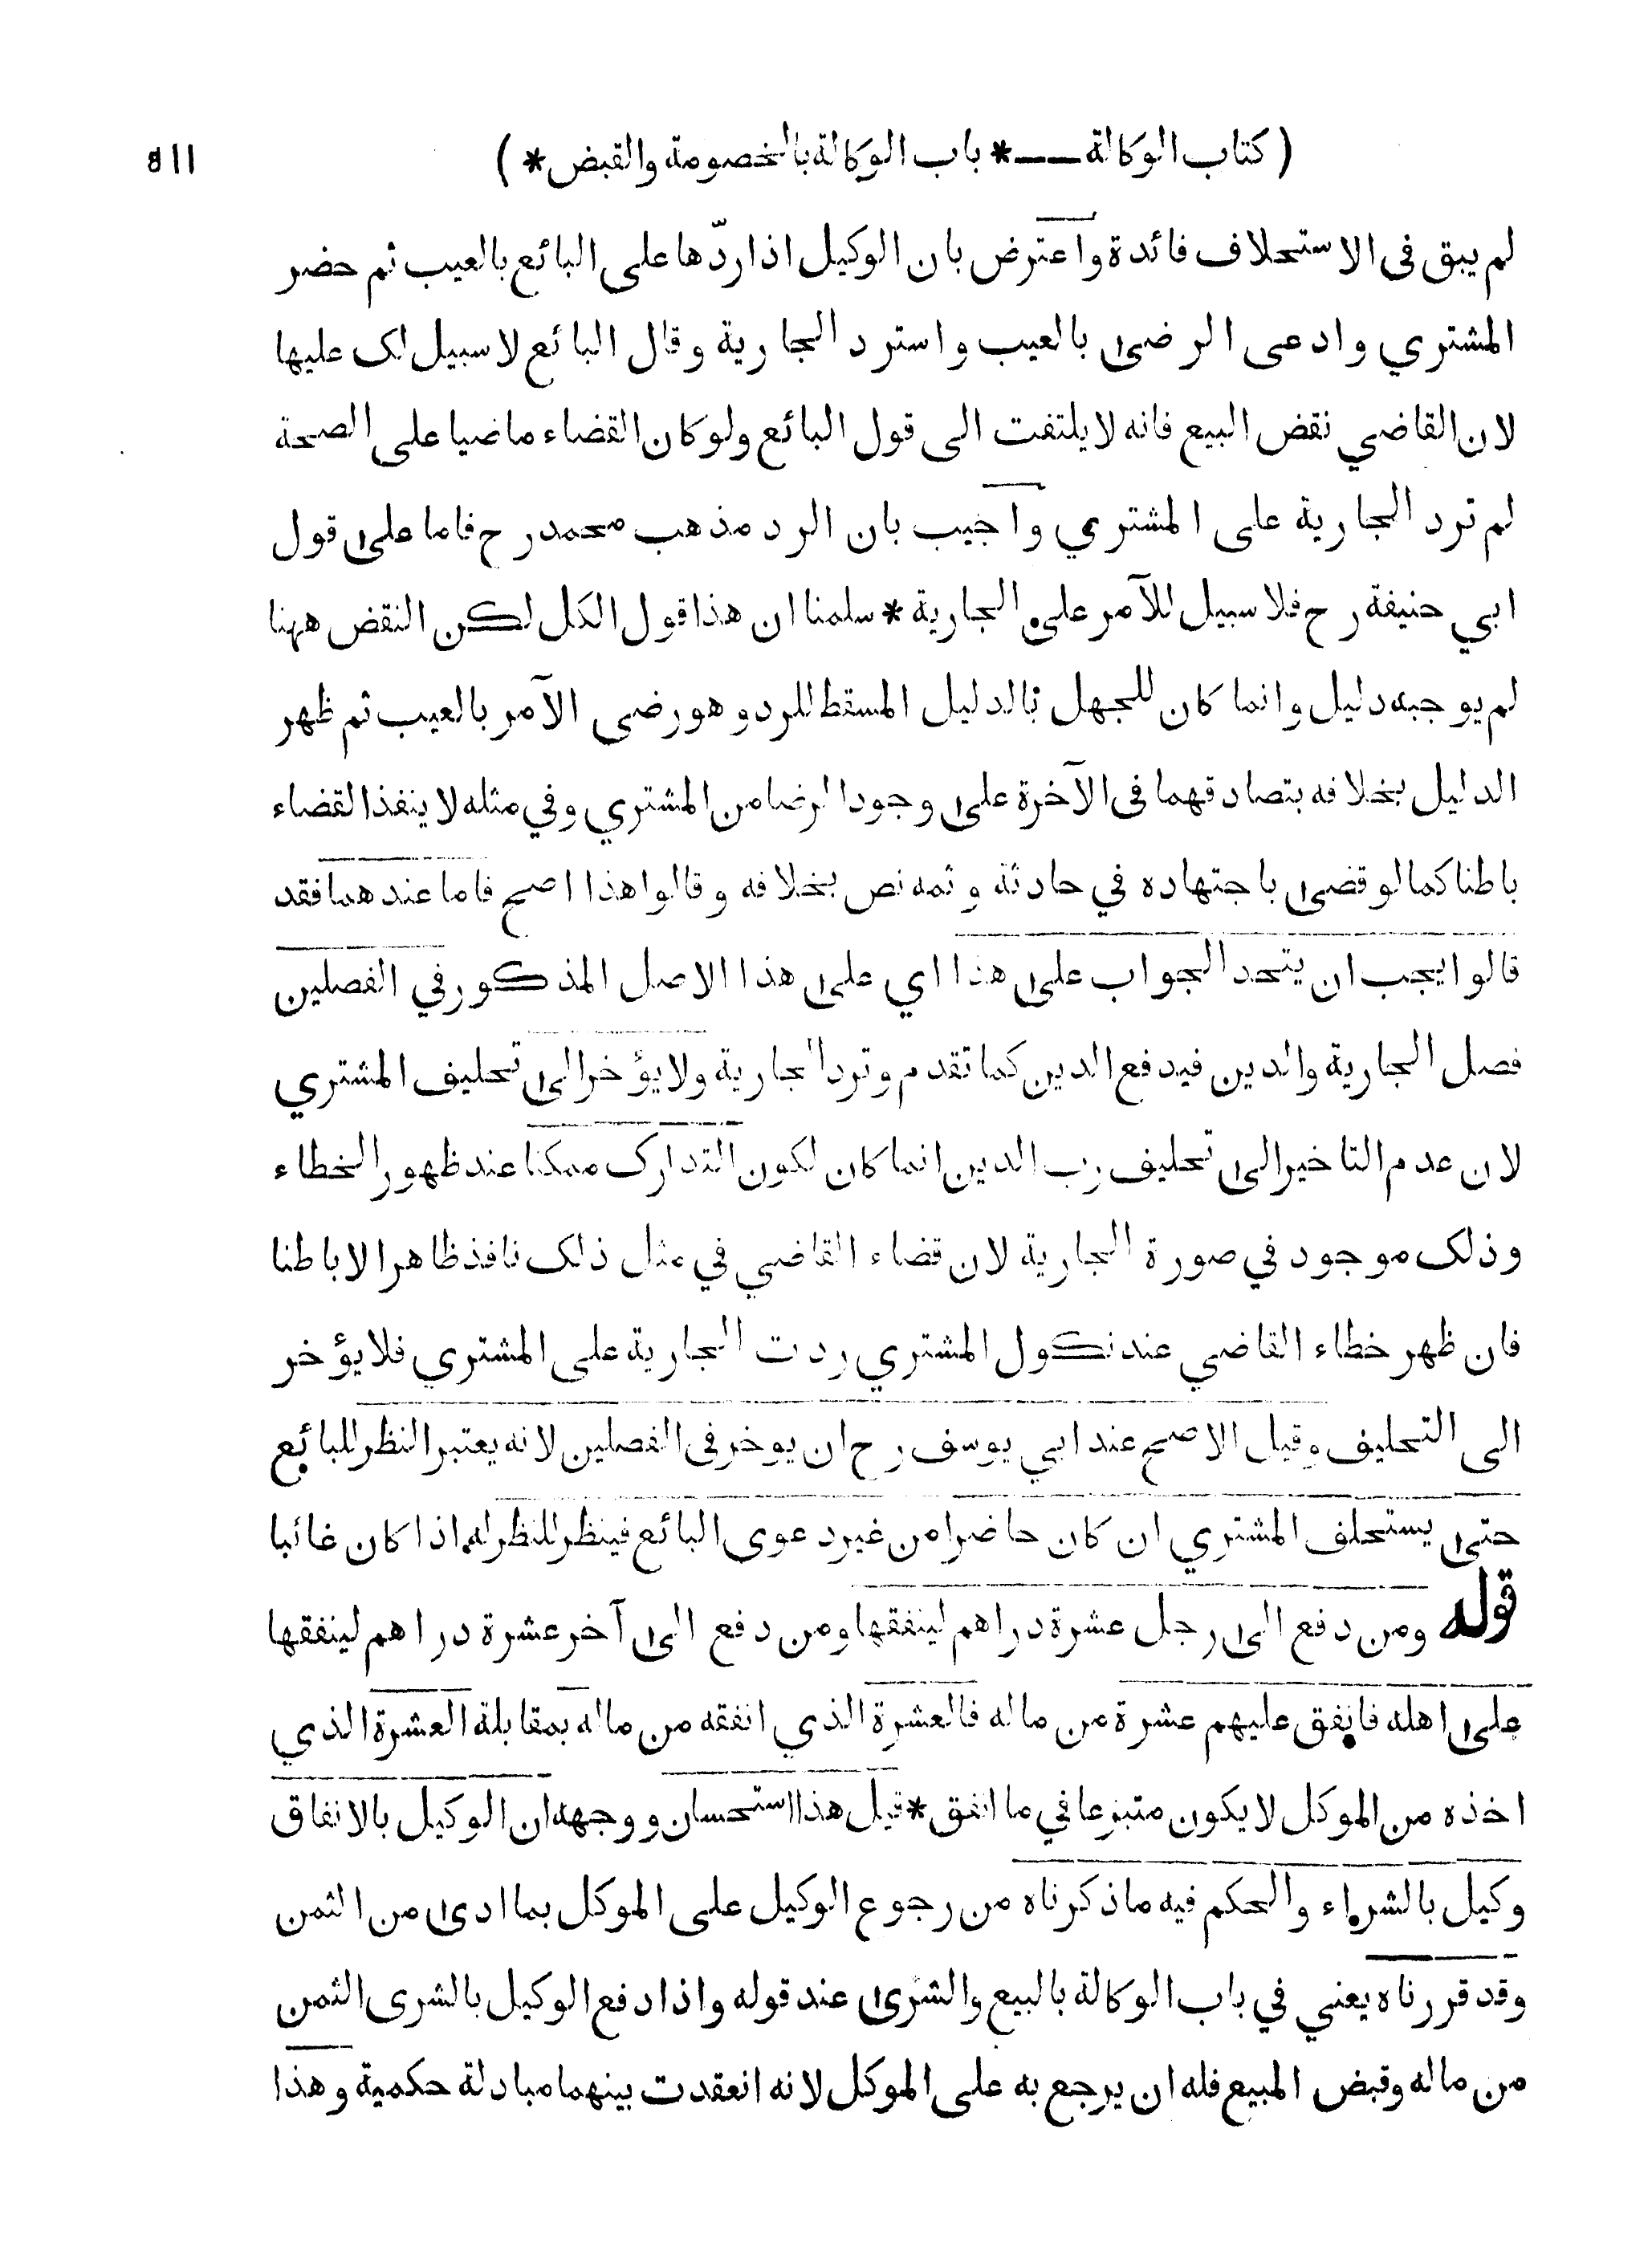 ( كتاب الوكالة —— * باب الوكالة بالخصومة والقبض * )
لم يبق فى الاستحلاف فائدة واعترض بان الوكيل اذا ردّها على البائع بالعيب ثم حضر
المشتري وادعى الرضى بالعيب واسترد الجارية وقال البائع لا سبيل لك عليها
لان القاضي نقض البيع فانه لا يلتفت الى قول البائع ولو كان القضاء ماضيا على الصحة
لم ترد الجارية على المشتري واجيب بان الرد مذهب محمد رح فاما على قول
ابي حنيفة رح فلا سبيل للآمر على الجارية * سلمنا ان هذا قول الكل لكن النقض ههنا
لم يوجبه دليل وانما كان للجهل بالدليل المسقط للرد وهو رضى الآمر بالعيب ثم ظهر
الدليل بخلافه بتصادقهما فى الآخرة على وجود الرضا من المشتري وفي مثله لا ينفذ القضاء
باطنا كما لو قضى باجتهاده في حادثة وثمه نص بخلافه وقالوا هذا اصح فاما عندهما فقد
قالوا يجب ان يتحد الجواب على هذا اي على هذا الاصل المذكور في الفصلين
فصل الجارية والدين فيدفع الدين كما تقدم وترد الجارية ولا يؤخر الى تحليف المشتري
لان عدم التاخير الى تحليف رب الدين انما كان لكون التدارك ممكنا عند ظهور الخطاء
وذلك موجود في صورة الجارية لان قضاء القاضي في مثل ذلك نافذ ظاهرا لا باطنا
فان ظهر خطاء القاضي عند نكول المشتري ردت الجارية على المشتري فلا يؤخر
الى التحليف وقيل الاصح عند ابي يوسف رح ان يوخر فى الفصلين لانه يعتبر النظر للبائع
حتى يستحلف المشتري ان كان حاضرا من غير دعوى البائع فينظر للنظر له اذا كان غائبا
قوله ومن دفع الى رجل عشرة دراهم لينفقها ومن دفع الى آخر عشرة دراهم لينفقها
على اهله فانفق عليهم عشرة من ماله فالعشرة الذي انفقه من ماله بمقابلة العشرة الذي
اخذه من الموكل لا يكون متبرعا في ما انفق * قيل هذا استحسان ووجهه ان الوكيل بالانفاق
وكيل بالشراء والحكم فيه ما ذكرناه من رجوع الوكيل على الموكل بما ادى من الثمن
وقد قررناه يعني في باب الوكالة بالبيع والشرى عند قوله واذا دفع الوكيل بالشرى الثمن
من ماله وقبض المبيع فله ان يرجع به على الموكل لانه انعقدت بينهما مبادلة حكمية وهذا